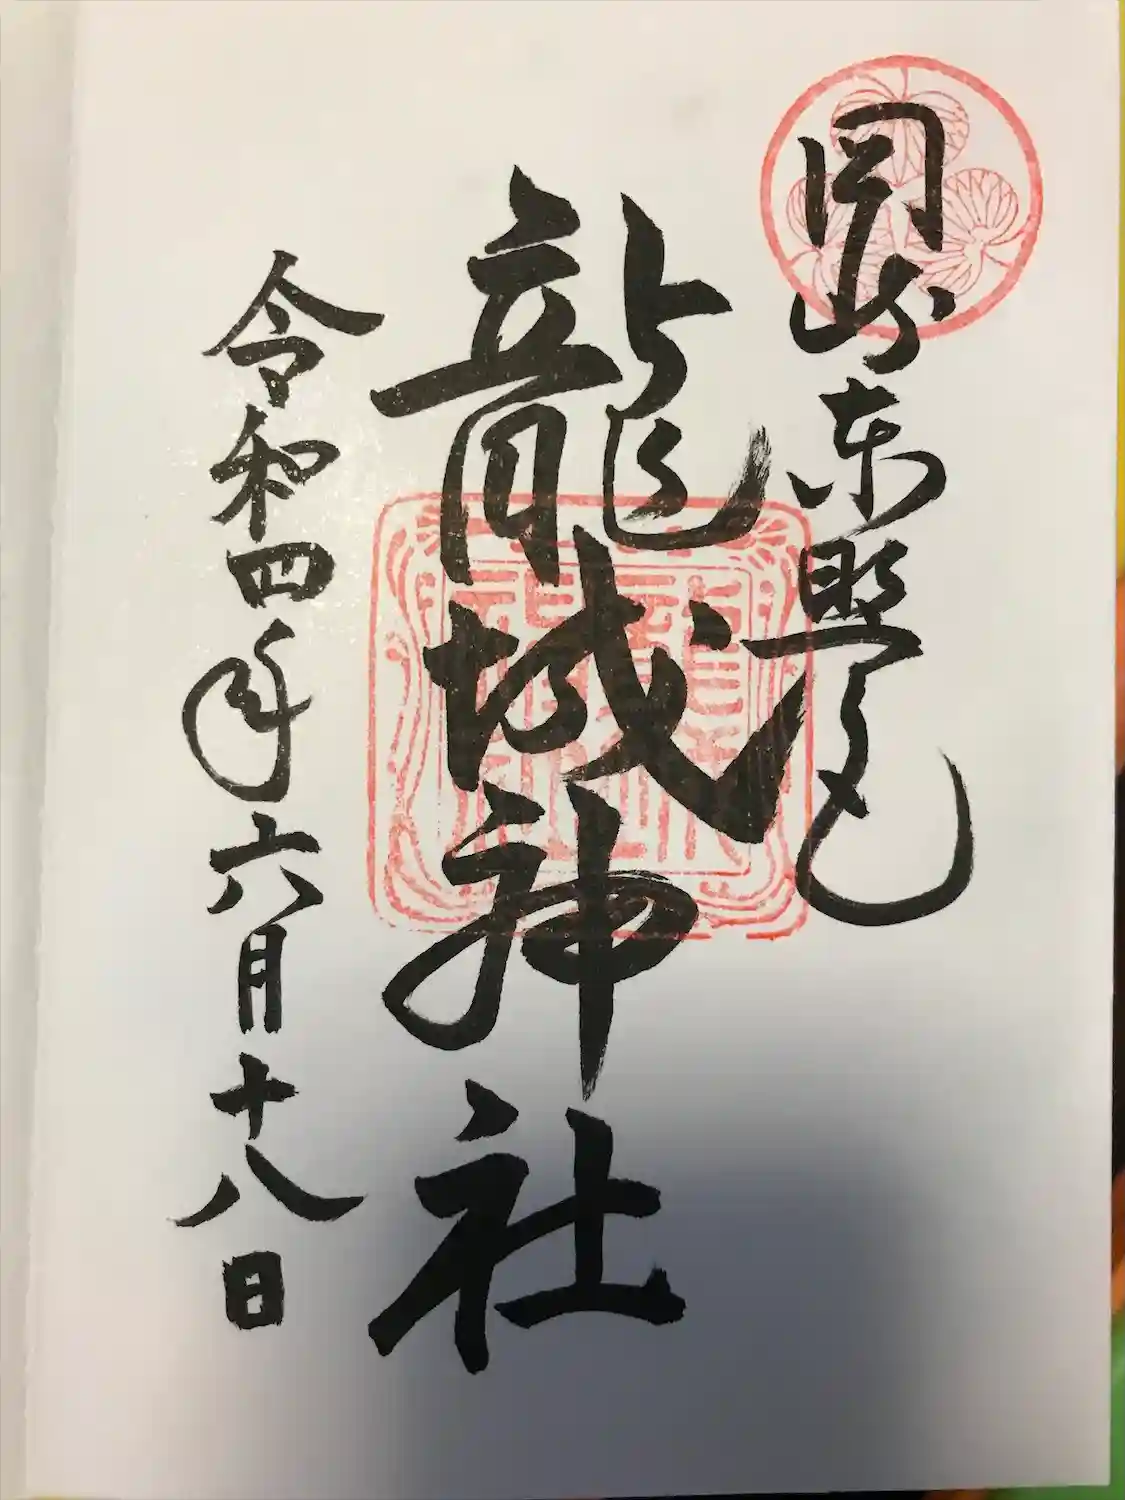 岡崎東照宮
龍城神社
令和四年六月十八日